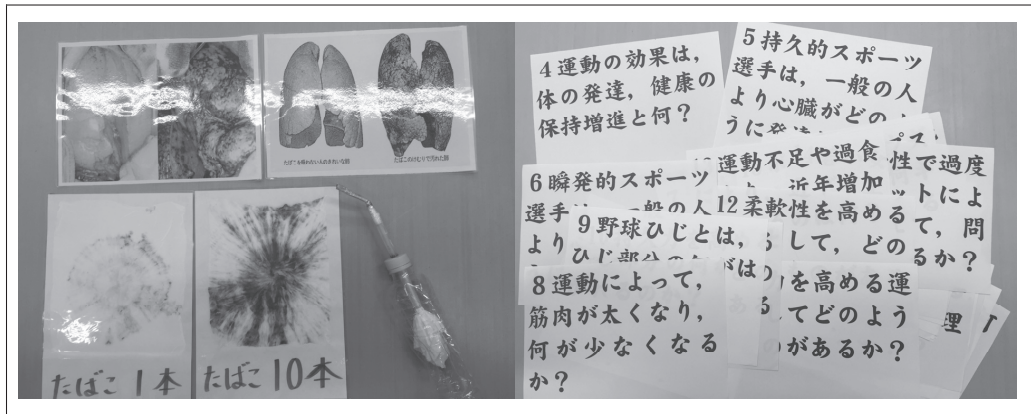 たばこを吸わない人のきれいな肺
たばこのけむりで汚れた肺
たばこ 1本
たばこ 10本
4 運動の効果は，
体の発達，健康の
保持増進と何？
5 持久的スポーツ
選手は，一般の人
より心臓がどのよ
うに発達
6 瞬発的スポーツ
選手は，一般の人
より
運動不足や過食
近年増加
性で過度
ットによ
て，問
るか？
12 柔軟性を高める
して，どの
9 野球ひじとは，
ひじ部分の
がは
ある
8 運動によって，
筋肉が太くなり，
何が少なくなる
か？
を高める運
てどのよう
があるか？
理